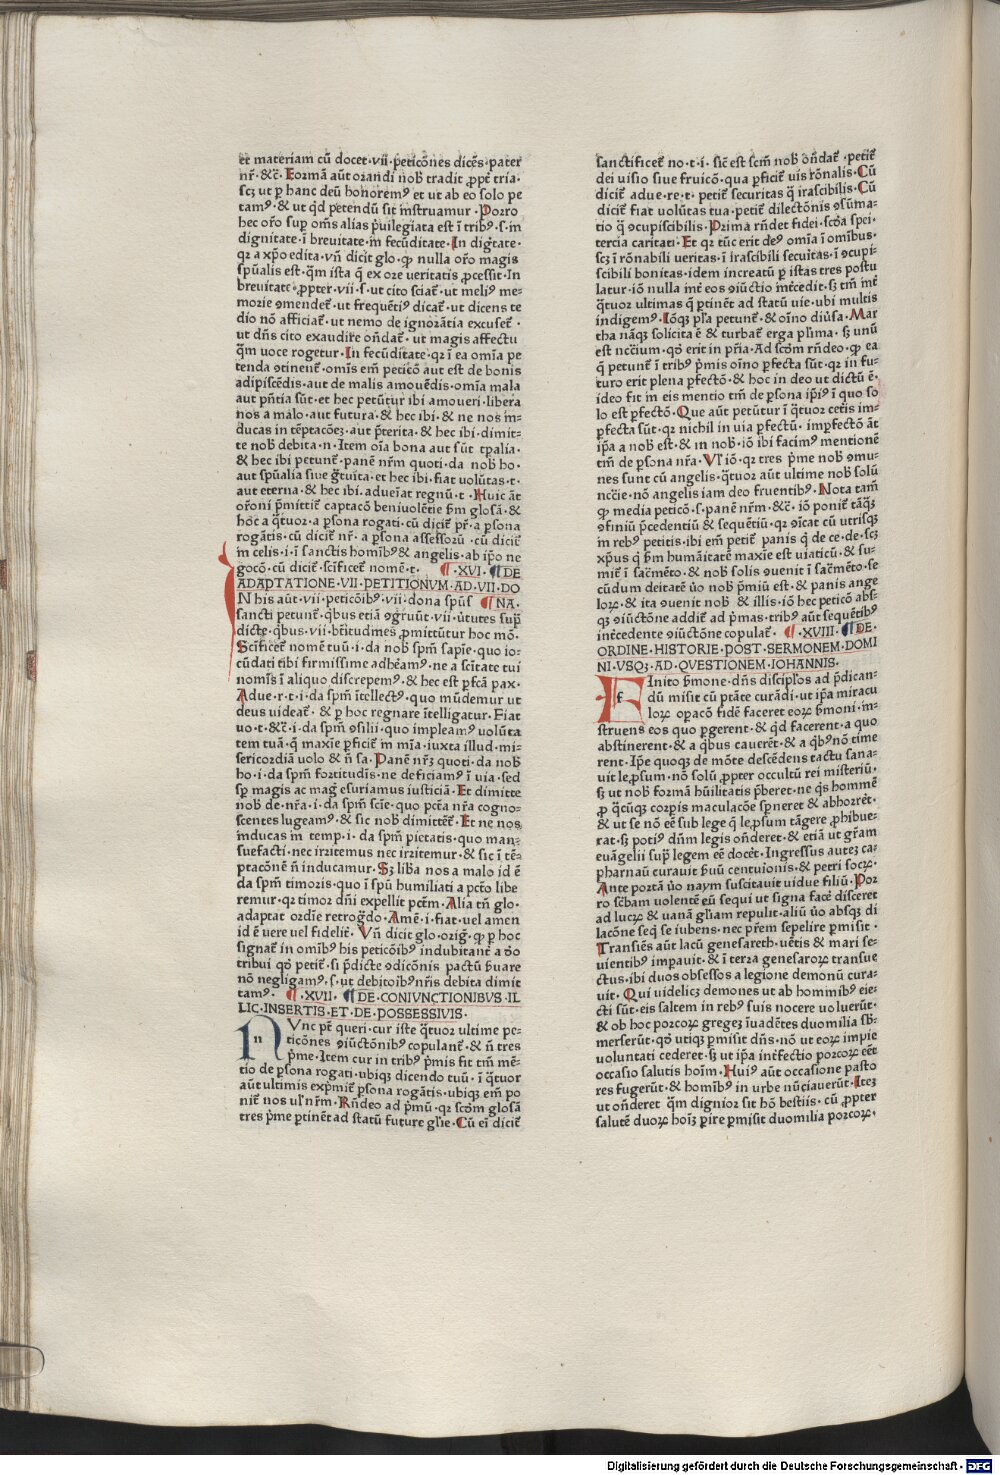 et materiam cū docet·vii·peticōnes dicēs·pater
nr̄·&c̄·Formā aūt orandi nob̄ tradit ꝓpt̄ tria·
scꝫ ut ꝑ hanc deū honoremꝰ et ut ab eo solo pe
tamꝰ·& ut qd̄ petendū sit instruamur·Porro
hec or̄o suꝑ om̄s alias p̄uilegiata est ī tribꝰ·s·in
dignitate·ī breuitate·in fecūditate·In dig̅tate·
qꝛ a xp̄o edita·vn̄ dicit glo·ꝙ nulla or̄o magis
sp̄ualis est·q̄m ista q̄ ex ore veritatis ꝓcessit·In
breuitate·ꝓpter·vii·s·ut cito sciat̄·ut meliꝰ me-
morie ꝯmendet̄·ut frequētiꝰ dicat̄·ut dicens te
dio nō afficiat̄·ut nemo de ignorātia excuset̄·
ut dn̄s cito exaudire on̄dat̄·ut magis affectu
q̄m uoce rogetur·In fecūditate·qꝛ ī ea om̄ia pe
tenda ꝯtinent̄·om̄is em̄ peticō aut est de bonis
adipiscēdis·aut de malis amouēdis·om̄ia mala
aut pn̄tia sūt·et hec petūtur ibi amoueri·libera
nos a malo·aut futura·& hec ibi·& ne nos in-
ducas in tēptacōeꝫ·aut p̄terita·& hec ibi·dimit-
te nob̄ debita·n·Item oīa bona aut sūt tp̄alia·
& hec ibi petunt̄·panē nr̄m quoti·da nob̄ ho·
aut sp̄ualia siue g̅tuita·et hec ibi·fiat uolūtas·t·
aut eterna·& hec ibi·adueīat regnū·t·Huic āt
or̄oni p̄mittit̄ captacō beniuolētie ẜm glosā·&
hoc a q̄tuor·a ꝑsona rogati·cū dicit̄ pr̄·a ꝑsona
rogātis·cū dicit̄ nr̄·a ꝑsona assessorū·cū dicit̄
in celis·i·ī sanctis homībꝰ & angelis·ab ip̄o ne
gocō·cū dicit̄·scificet̄ nomē·t· ¶·XVI·¶DE
ADAPTATIONE·VII·PETITIONVM·AD·VII·DO
N his aūt·vii·peticōibꝰ·vii·dona sp̄us ¶NA·
sancti petunt̄·qbus etiā ꝯgruūt·vii·ūtutes sup̄
dicte·qbus·vii·bt̄itudines ꝓmittūtur hoc mō·
Scificet̄ nomē tuū·i·da nob̄ spm̄ sapīe·quo io-
cūdati tibi firmissime adhēamꝰ·ne a scītate tui
nomīs ī aliquo discrepemꝰ·& hec est ꝑfcā pax·
Adue·r·t·i·da spm̄ ītellectꝰ·quo mūdemur ut
deus uideat̄·& ꝑ hoc regnare ītelligatur·Fiat
uo·t·&c̄·i·da spm̄ ꝯsilii·quo impleamꝰ uolūta
tem tuā·q̄ maxīe ꝑficit̄ in mīa·iuxta illud·mi-
sericordiā uolo & n̄ sa·Panē nr̄ꝫ quoti·da nob̄
ho·i·da spm̄ fortitudīs·ne deficiamꝰ ī uia·sed
sꝑ magis ac mag̅ esuriamus iusticiā·Et dimitte
nob̄ de·nr̄a·i·da spm̄ scīe·quo pctā nr̄a cogno-
scentes lugeamꝰ·& sic nob̄ dimittēt̄·Et ne nos
inducas in temp·i·da spm̄ pietatis·quo man-
suefacti·nec irritemus nec irritemur·& sic ī tē-
ptacōnē n̄ inducamur·Sꝫ liba nos a malo id ē
da spm̄ timoris·quo ī spū humiliati a pctō libe
remur·qꝛ timor dn̄i expellit pctm̄·Alia tn̄ glo·
adaptat ordīe retrog̅do·Amē·i·fiat·uel amen
id ē uere uel fidelit̄·Vn̄ dicit glo·orig̅·ꝙ ꝑ hoc
signat̄ in omībꝰ his peticōibꝰ indubitant̄ a do
tribui qd̄ petit̄·si p̄dicte ꝯdicōnis pactū ẜuare
nō negligamꝰ·s·ut debitoībꝰ nr̄is debita dimit
tamꝰ· ¶·XVII·¶DE·CONIVNCTIONIBVS·IL
LIC·INSERTIS·ET·DE·POSSESSIVIS·
NVnc pt̄ queri·cur iste q̄tuor ultime pe-
ticōnes ꝯiūctōnibꝰ copulant̄·& n̄ tres
p̄me·Item cur in tribꝰ p̄mis fit tm̄ mē-
tio de ꝑsona rogati·ubiqꝫ dicendo tuū·ī q̄tuor
aūt ultimis exp̄mit̄ ꝑsona rogātis·ubiqꝫ em̄ po
nit̄ nos ul̄ nr̄m·Rn̄deo ad p̄mū·qꝛ scd̄m glosā
tres p̄me ꝑtinēt ad statū future gl̄ie·Cū ei dicit̄
sanctificet̄ no·t·i·sic̄ est scm̄ nob̄ on̄dat̄·petit̄
dei uisio siue fruicō·qua ꝑficit̄ uis rōnalis·Cū
dicit̄ adue·re·t·petit̄ securitas q̄ irascibilis·Cū
dicit̄ fiat uolūtas tua·petit̄ dilectōnis ꝯsūma-
tio q̄ ꝯcupiscibilis·Prima rn̄det fidei·scd̄a spei·
tercia caritati·Et qꝛ tūc erit deꝰ om̄ia ī omībus·
scꝫ ī rōnabili ueritas·ī irascibili secuitas·ī ꝯcupi-
scibili bonitas·idem increatū ꝑ istas tres postu
latur·iō nulla int̄ eos ꝯiūctio int̄cedit·sꝫ tm̄ int̄
q̄tuor ultimas q̄ ꝑtinēt ad statū uie·ubi multis
indigemꝰ·Iōqꝫ pl̄a petunt̄·& oīno diūsa·Mar
tha nāqꝫ solicita ē & turbat̄ erga pl̄ima·sꝫ unū
est nccīum·qd̄ erit in pr̄ia·Ad scdm̄ rn̄deo·ꝙ ea
q̄ petunt̄ ī tribꝰ p̄mis oīno ꝑfecta sūt·qꝛ in fu-
turo erit plena ꝑfectō·& hoc in deo ut dictū ē·
ideo fit in eis mentio tm̄ de ꝑsona ip̄iꝰ ī quo so
lo est ꝑfectō·Que aūt petūtur ī q̄tuor cet̄is im-
ꝑfecta sūt·qꝛ nichil in uia ꝑfectū·imꝑfectō āt
ip̄a a nob̄ est·& in nob̄·iō ibi facimꝰ mentionē
tm̄ de ꝑsona nr̄a·Vl̄ iō·qꝛ tres p̄me nob̄ ꝯmu-
nes sunt cū angelis·q̄tuor aūt ultime nob̄ solū
nccīe·nō angelis iam deo fruentibꝰ·Nota tam̄
ꝙ media peticō·s·panē nr̄m·&c̄·iō ponit̄ tāq̄ꝫ
ꝯfiniū p̄cedentiū & sequētiū·qꝛ ꝯīcat cū utrisqꝫ
in rebꝰ petitis·ibi em̄ petit̄ panis q̄ de ce·de·scꝫ
xp̄us q̄ ẜm humāitatē maxīe est uiaticū·& su-
mit̄ ī sac̄mēto·& nob̄ solis ꝯuenit ī sac̄mēto·se
cūdum deitatē uo nob̄ p̄miū est·& panis ange
loꝝ·& ita ꝯuenit nob̄ & illis·iō hec peticō abs-
qꝫ ꝯiūctōne addit̄ ad p̄mas·tribꝰ aūt sequētibꝰ
int̄cedente ꝯiūctōne copulat̄· ¶·XVIII·¶DE·
ORDINE·HISTORIE·POST·SERMONEM·DOMI
NI·VSQꝫ·AD·QVESTIONEM·IOHANNIS·
FInito ẜmone·dn̄s discip̄los ad p̄dican-
dū misit cū ptāte curādi·ut ip̄a miracu
loꝝ opacō fidē faceret eoꝝ ẜmoni·in-
struens eos quo ꝑgerent·& qd̄ facerent·a quo
abstinerent·& a qbus cauerēt·& a qbꝰ nō time
rent·Ip̄e quoqꝫ de mōte descēdens tactu sana-
uit leꝓsum·nō solū ꝓpter occultū rei misteriū·
sꝫ ut nob̄ formā hūilitatis p̄beret·ne qs hominē
ꝓ q̄cūqꝫ corpis maculacōe spneret & abhorrēt·
& ut se nō eē sub lege q̄ leꝓsum tāgere ꝓhibue-
rat·sꝫ potiꝰ dn̄m legis on̄deret·& etiā ut gr̄am
euāgelii sup̄ legem eē docēt·Ingressus auteꝫ ca-
pharnaū curauit ẜuū centuionis·& petri socꝝ·
Ante portā uo naym suscitauit uidue filiū·Por
ro sc̄bam uolentē eū sequi ut signa facēt disceret
ad lucꝝ & uanā gl̄iam repulit·aliū uo absqꝫ di
lacōne seq̄ se iubens·nec pr̄em sepelire ꝑmisit·
Transiēs aūt lacū genesareth·uētis & mari se-
uientibꝰ impauit·& ī terra genesaroꝝ transue
ctus·ibi duos obsessos a legione demonū cura-
uit·Qui uidelicꝫ demones ut ab hominibꝰ eie-
cti sūt·eis saltem in rebꝰ suis nocere uoluerūt·
& ob hoc porcoꝝ gregeꝫ īuadētes duomilia sb̄-
merserūt·qd̄ utiqꝫ ꝑmisit dn̄s·nō ut eoꝝ impie
voluntati cederet·sꝫ ut ip̄a int̄fectio porcoꝝ eēt
occasio salutis hoīm·Huiꝰ aūt occasione pasto
res fugerūt·& homībꝰ in urbe nūciauerūt·Iteꝫ
ut on̄deret q̄m dignior sit hō bestiis·cū ꝓpter
salutē duoꝝ hoīꝫ ꝑire ꝑmisit duomilia porcoꝝ·
Digitalisierung gefördert durch die Deutsche Forschungsgemeinschaft - DFG